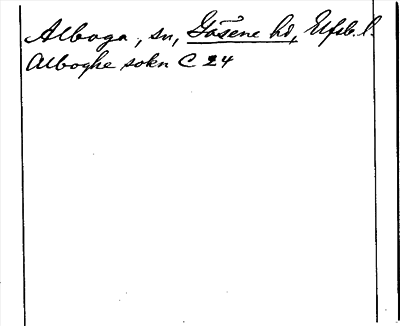 Alboga, sn, Gäsene hd, Älfsb. l.
Alboghe sokn C 24